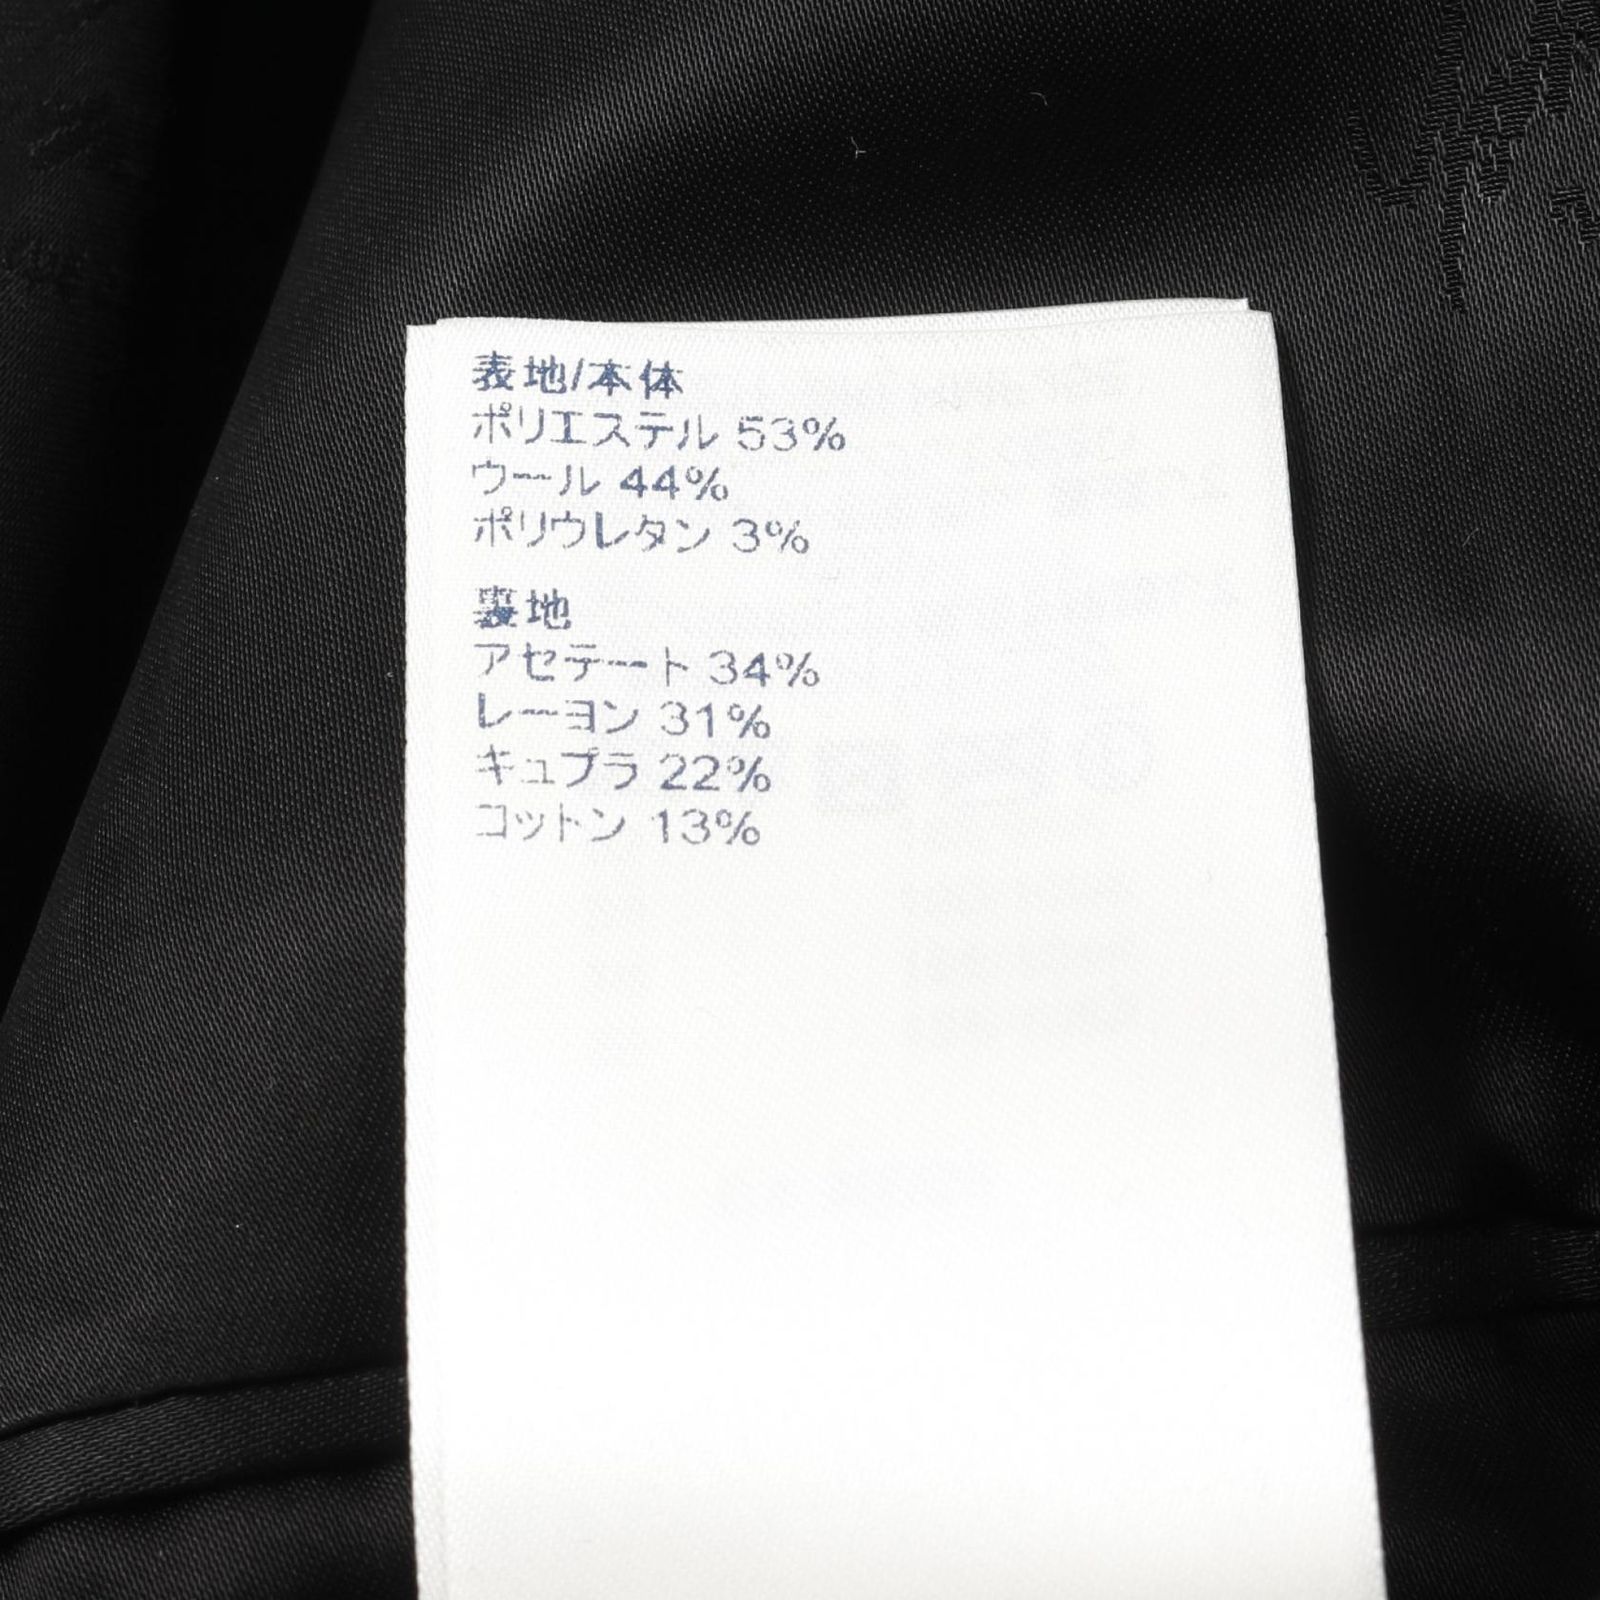 表地/本体
ポリエステル 53%
ウール 44%
ポリウレタン 3%
裏地
アセテート 34%
レーヨン 31%
キュプラ 22%
コットン 13%